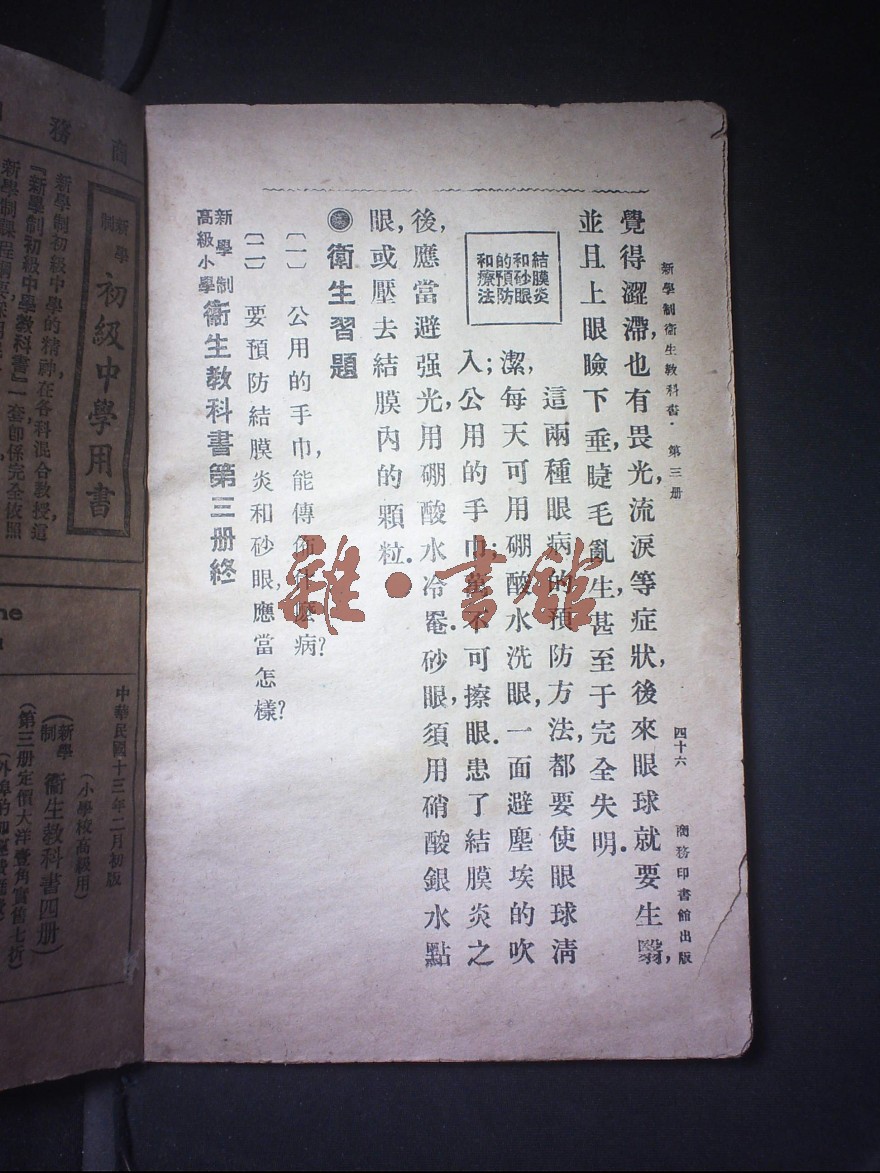 新學制衛生教科書．第三册
四十六
商務印書館出版
覺得澀滯，也有畏光，流淚等症狀，後來眼球就要生翳，
並且上眼瞼下垂，睫毛亂生，甚至于完全失明．
結膜炎
和砂眼
的預防
和療法
這兩種眼病的預防方法，都要使眼球淸
潔，每天可用硼酸水洗眼，一面避塵埃的吹
入；公用的手巾，萬不可擦眼．患了結膜炎之
後，應當避强光，用硼酸水冷罨．砂眼，須用硝酸銀水點
眼，或壓去結膜內的顆粒．
衛生習題
(一) 公用的手巾，能傳佈什麼病？
(二) 要預防結膜炎和砂眼，應當怎樣？
新學制
高級小學
衛生教科書第三册終
雜·書館
商務
新學制
初級中學用書
新學制初級中學的精神，在各科混合教授，這
『新學制初級中學教科書』一套，卽係完全依照
新學制課程綱要
中華民國十三年二月初版
(小學校高級用)
(新學制 衛生教科書四册)
(第三册定價大洋壹角實售七折)